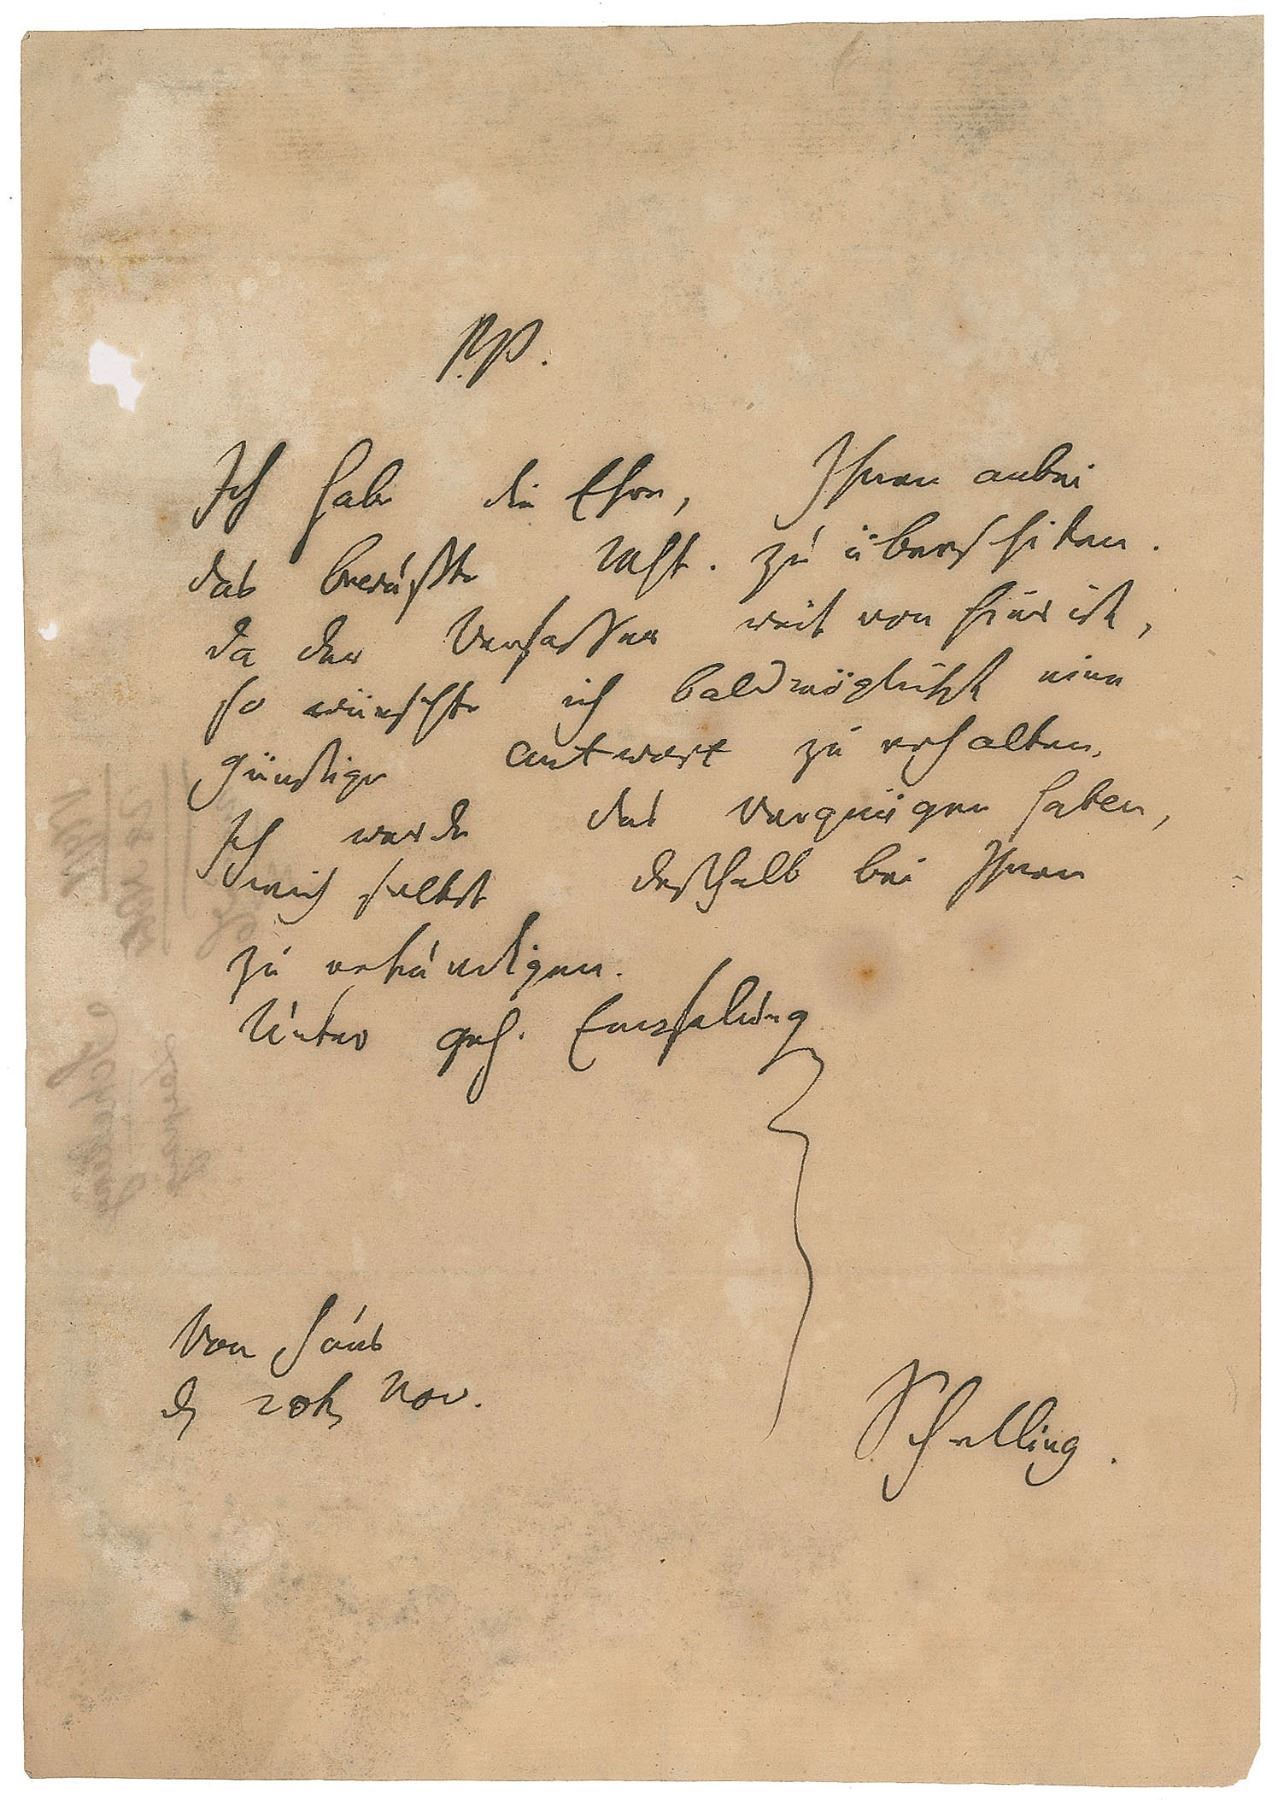 PP.
Ich habe die Ehre, Ihnen anbei
das bewußte Mspt. zu überschiken.
da der Verfasser weit von hier ist,
so wünschte ich baldmöglichst eine
günstige Antwort zu erhalten.
Ich werde das Vergnügen haben,
mich selbst deßhalb bei Ihnen
zu erkundigen.
Unter geh. Empfelung
Von Haus
d 20t Nov.
Schelling.